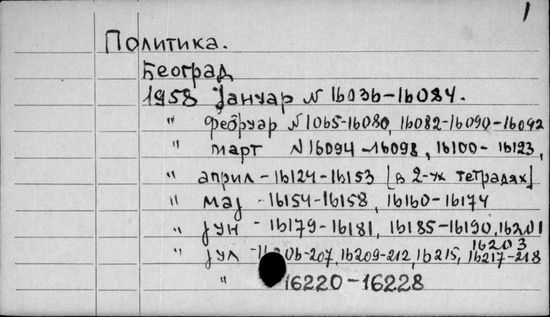 1
Политика.
Београд
1958 Јануар N 16036-16084.
" фебруар N 1065-16080, 16082-16090-16092
" март N 16094-16098, 16100-16123,
" април - 16124-16153 [в 2-ух тетрадях]
" мај - 16154-16158, 16160-16174
" јун - 16179-16181, 16185-16190, 16201
16203
" јул - 206-207, 16209-212, 16215, 16217-218
" 16220-16228